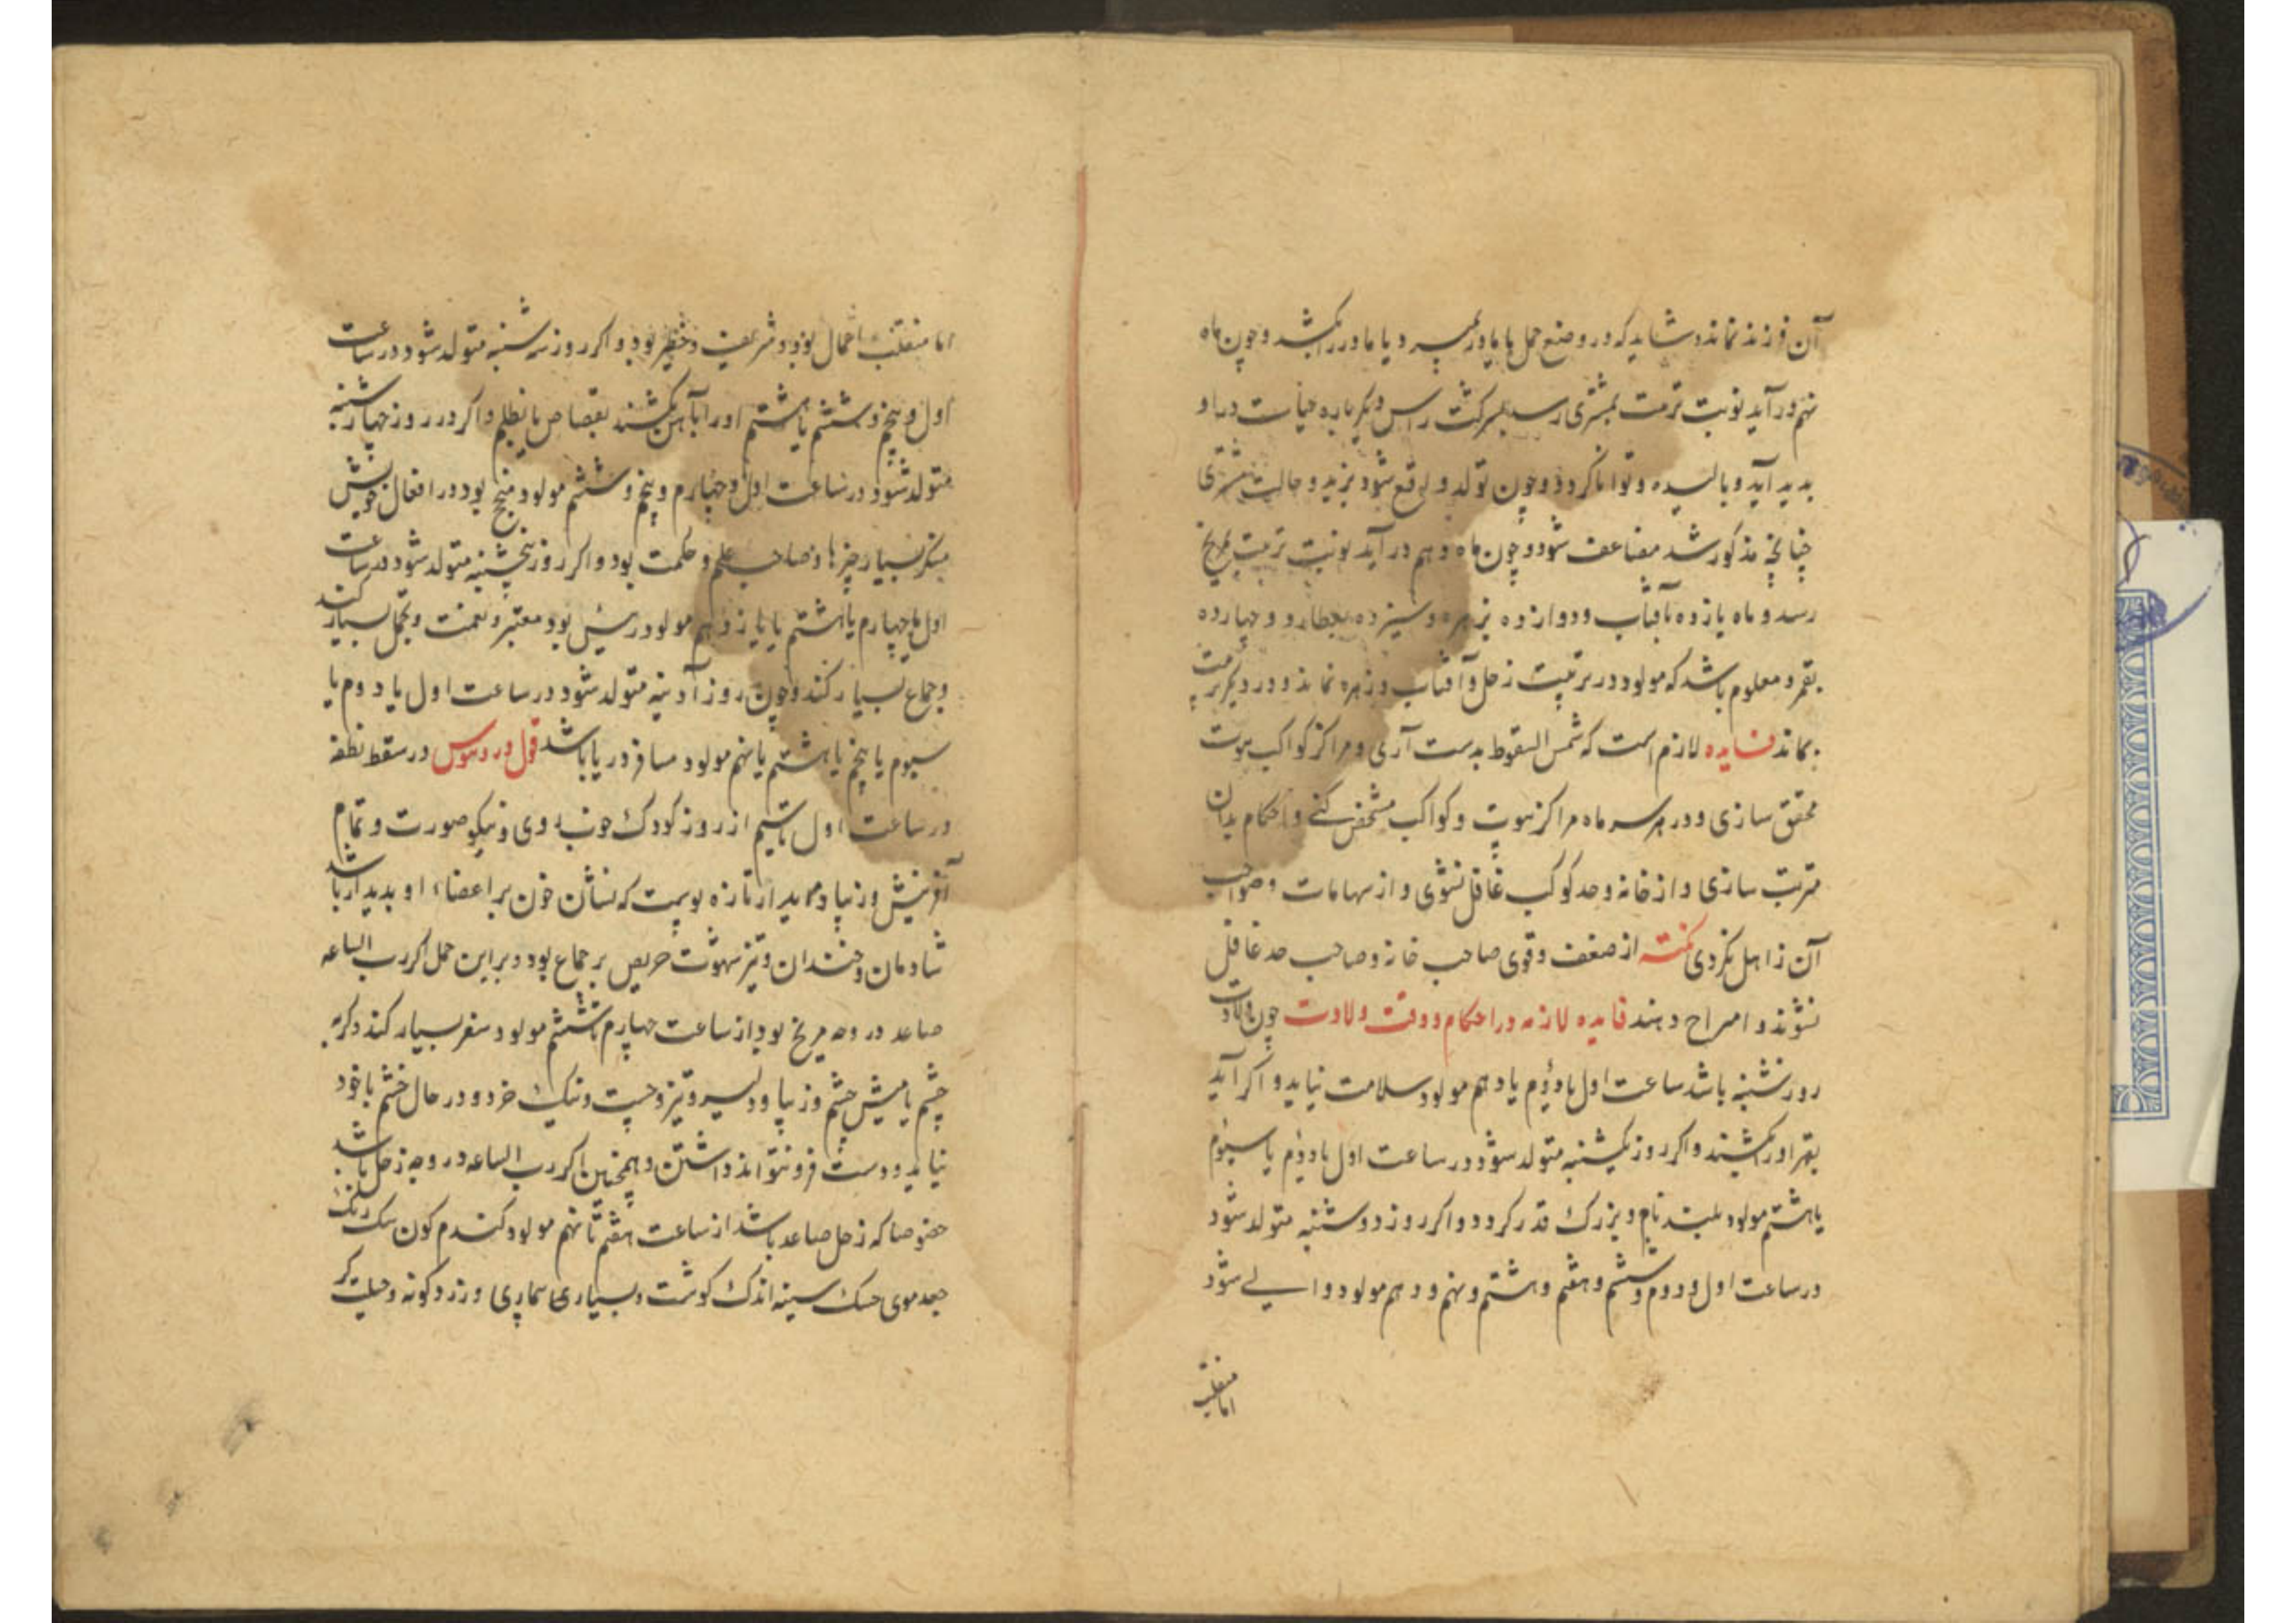 آن فرزند نماند و شاید که در وضع حمل یا مادر بمیرد یا مادر را بکشد و چون ماه
نهم در آید نوبت تربیت بمشتری رسد دیگر باره حیات در او
بدید آید و بالیده و توانا کردد و چون تولد واقع شود بزید و حالت مشتری
چنانچه مذکور شد مضاعف شود و چون ماه دهم در آید نوبت تربیت بمریخ
رسد و ماه یازده بآفتاب و دوازده بزهره و سیزده بعطارد و چهارده
بقمر و معلوم باشد که مولود در تربیت زحل و آفتاب و زهره نماند و در دیکر تربیت
بماند فایده لازم است که شمس السقوط بدست آری و مراکز کواکب بیوت
محقق سازی و در هر سر ماه مراکز بیوت و کواکب مشخص کنی و احکام بدان
مرتب سازی و از خانه و حد کوکب غافل نشوی و از سهامات و صواحب
آن ذاهل نکردی نکته از ضعف و قوی صاحب خانه و صاحب حد غافل
نشوند و امراح دهند فایده لازمه در احکام و وقت ولادت چون ولادت
روز شنبه باشد ساعت اول یا دوم یا دهم مولود سلامت نیاید و اکر آید
بقهر او را بکشند و اکر روز یکشنبه متولد شود در ساعت اول یا دوم یا سیوم
یا هشتم مولود بلند نام و بزرک قدر کردد و اکر روز دوشنبه متولد شود
در ساعت اول و دوم و ششم و هفتم و هشتم و نهم و دهم مولود والی شود
اما منقلب
اما منقلب احمال بود و شریف و خطیر بود و اکر روز سه شنبه متولد شود در ساعت
اول و پنجم و ششم یا هشتم او را بآهن بکشند بقصاص یا بظلم و اکر در روز چهارشنبه
متولد شود در ساعت اول و چهارم و پنجم و ششم مولود منجح بود در افعال خویش
مبتکر بسیار چیزها و صاحب علم و حکمت بود و اکر روز پنجشنبه متولد شود در ساعت
اول یا چهارم یا هشتم یا یازدهم مولود رئیس بود معتبر و نعمت و تجمل بسیار کند
و جماع بسیار کند و چون روز آدینه متولد شود در ساعت اول یا دوم یا
سیوم یا پنجم یا هشتم یا نهم مولود مسافر دریا باشد قول دروتیوس در سقط نطفه
در ساعت اول تا سیم از روز کودک خوب روی و نیکو صورت و تمام
آفرینش و زیبا و بدیدار تازه پوست که نشان خون بر اعضاء او بدیدار باشد
شادمان و خندان و تیز شهوت حریص بر جماع بود و بر این حمل اکر رب الساعه
صاعد در وجه مریخ بود از ساعت چهارم تا ششم مولود سفر بسیار کند و کربه
چشم یا میش چشم و زیبا و دلیر و تیز و چست و تنک خرد و در حال خشم با خود
نیاید و دست فرو نتواند داشتن و همچنین اکر رب الساعه در وجه زحل باشد
خصوصا که زحل صاعد باشد از ساعت هفتم تا نهم مولود کندم کون سک رنک
جعد موی خشک سینه اندک کوشت و بسیاری بیماری و زرد کونه و حیلت کر